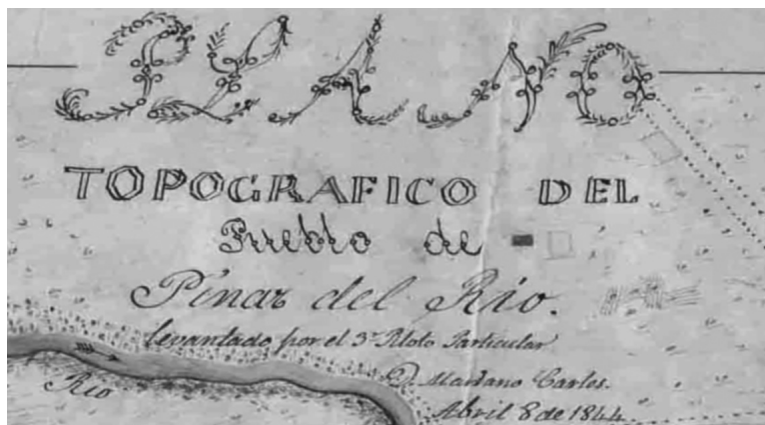 PLANO
TOPOGRAFICO DEL
Pueblo de
Pinar del Rio.
levantado por el 3r Piloto Particular
D. Mariano Carles.
Abril 8 de 1844.
Rio